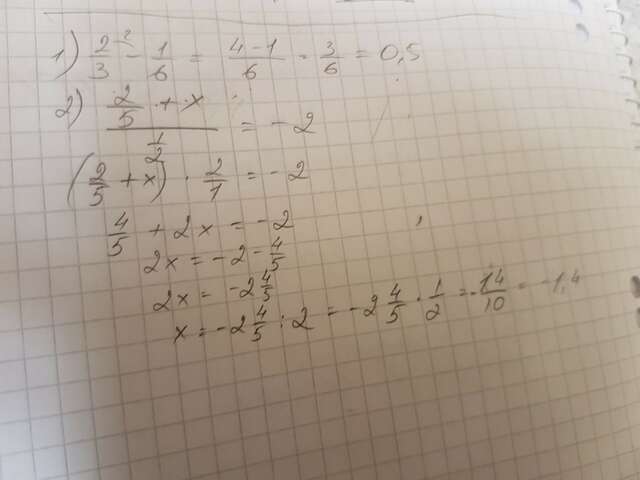 1) 2/3 - 1/6 = 4-1/6 = 3/6 = 0,5
2) (2/5 + x) / (1/2) = -2
(2/5 + x) · 2/1 = -2
4/5 + 2x = -2
2x = -2 - 4/5
2x = -2 4/5
x = -2 4/5 : 2 = -2 4/5 · 1/2 = -14/10 = -1,4